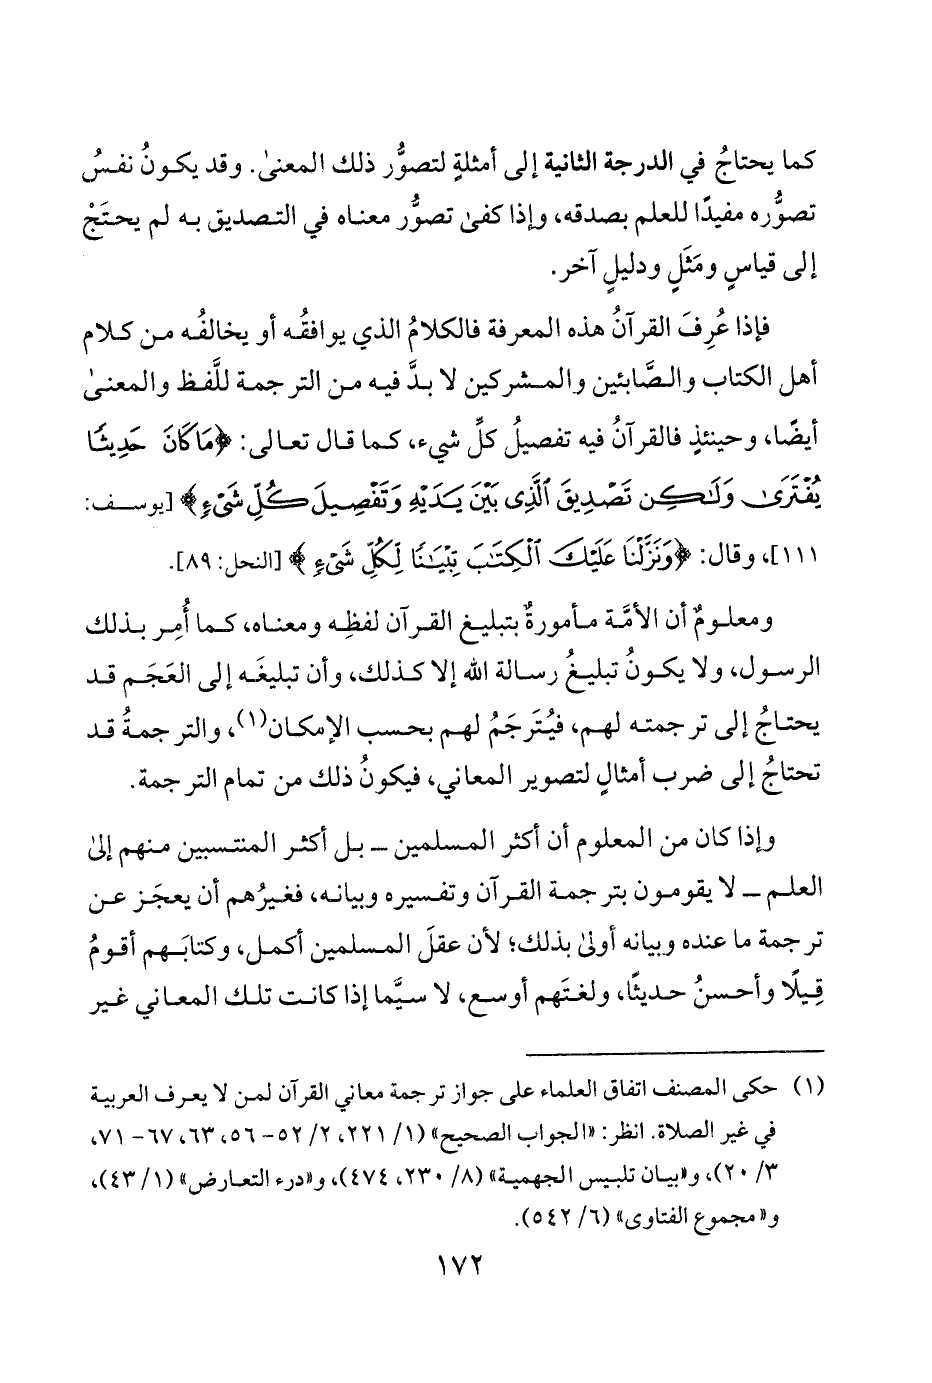 كما يحتاجُ في الدرجة الثانية إلى أمثلةٍ لتصوُّر ذلك المعنىٰ. وقد يكونُ نفسُ
تصوُّره مفيدًا للعلم بصدقه، وإذا كفىٰ تصوُّر معناه في التصديق به لم يحتَجْ
إلى قياسٍ ومَثَلٍ ودليلٍ آخر.
فإذا عُرِفَ القرآنُ هذه المعرفة فالكلامُ الذي يوافقُه أو يخالفُه من كلام
أهل الكتاب والصَّابئين والمشركين لا بدَّ فيه من الترجمة للَّفظ والمعنىٰ
أيضًا، وحينئذٍ فالقرآنُ فيه تفصيلُ كلِّ شيء، كما قال تعالى: ﴿مَا كَانَ حَدِيثًا
يُفْتَرَىٰ وَلَٰكِن تَصْدِيقَ ٱلَّذِى بَيْنَ يَدَيْهِ وَتَفْصِيلَ كُلِّ شَىْءٍ﴾ [يوسف:
١١١]، وقال: ﴿وَنَزَّلْنَا عَلَيْكَ ٱلْكِتَٰبَ تِبْيَٰنًا لِّكُلِّ شَىْءٍ﴾ [النحل: ٨٩].
ومعلومٌ أن الأمَّة مأمورةٌ بتبليغ القرآن لفظِه ومعناه، كما أُمِر بذلك
الرسول، ولا يكونُ تبليغُ رسالة الله إلا كذلك، وأن تبليغَه إلى العَجَم قد
يحتاجُ إلى ترجمته لهم، فيُتَرجَمُ لهم بحسب الإمكان(١)، والترجمةُ قد
تحتاجُ إلى ضرب أمثالٍ لتصوير المعاني، فيكونُ ذلك من تمام الترجمة.
وإذا كان من المعلوم أن أكثر المسلمين – بل أكثر المنتسبين منهم إلىٰ
العلم – لا يقومون بترجمة القرآن وتفسيره وبيانه، فغيرُهم أن يعجَز عن
ترجمة ما عنده وبيانه أولىٰ بذلك؛ لأن عقلَ المسلمين أكمل، وكتابَهم أقومُ
قِيلًا وأحسنُ حديثًا، ولغتَهم أوسع، لا سيَّما إذا كانت تلك المعاني غير
(١) حكى المصنف اتفاق العلماء على جواز ترجمة معاني القرآن لمن لا يعرف العربية
في غير الصلاة. انظر: «الجواب الصحيح» (١/ ٢٢١، ٢/ ٥٢- ٥٦، ٦٣، ٦٧- ٧١،
٣/ ٢٠)، و«بيان تلبيس الجهمية» (٨/ ٢٣٠، ٤٧٤)، و«درء التعارض» (١/ ٤٣)،
و«مجموع الفتاوى» (٦/ ٥٤٢).
١٧٢